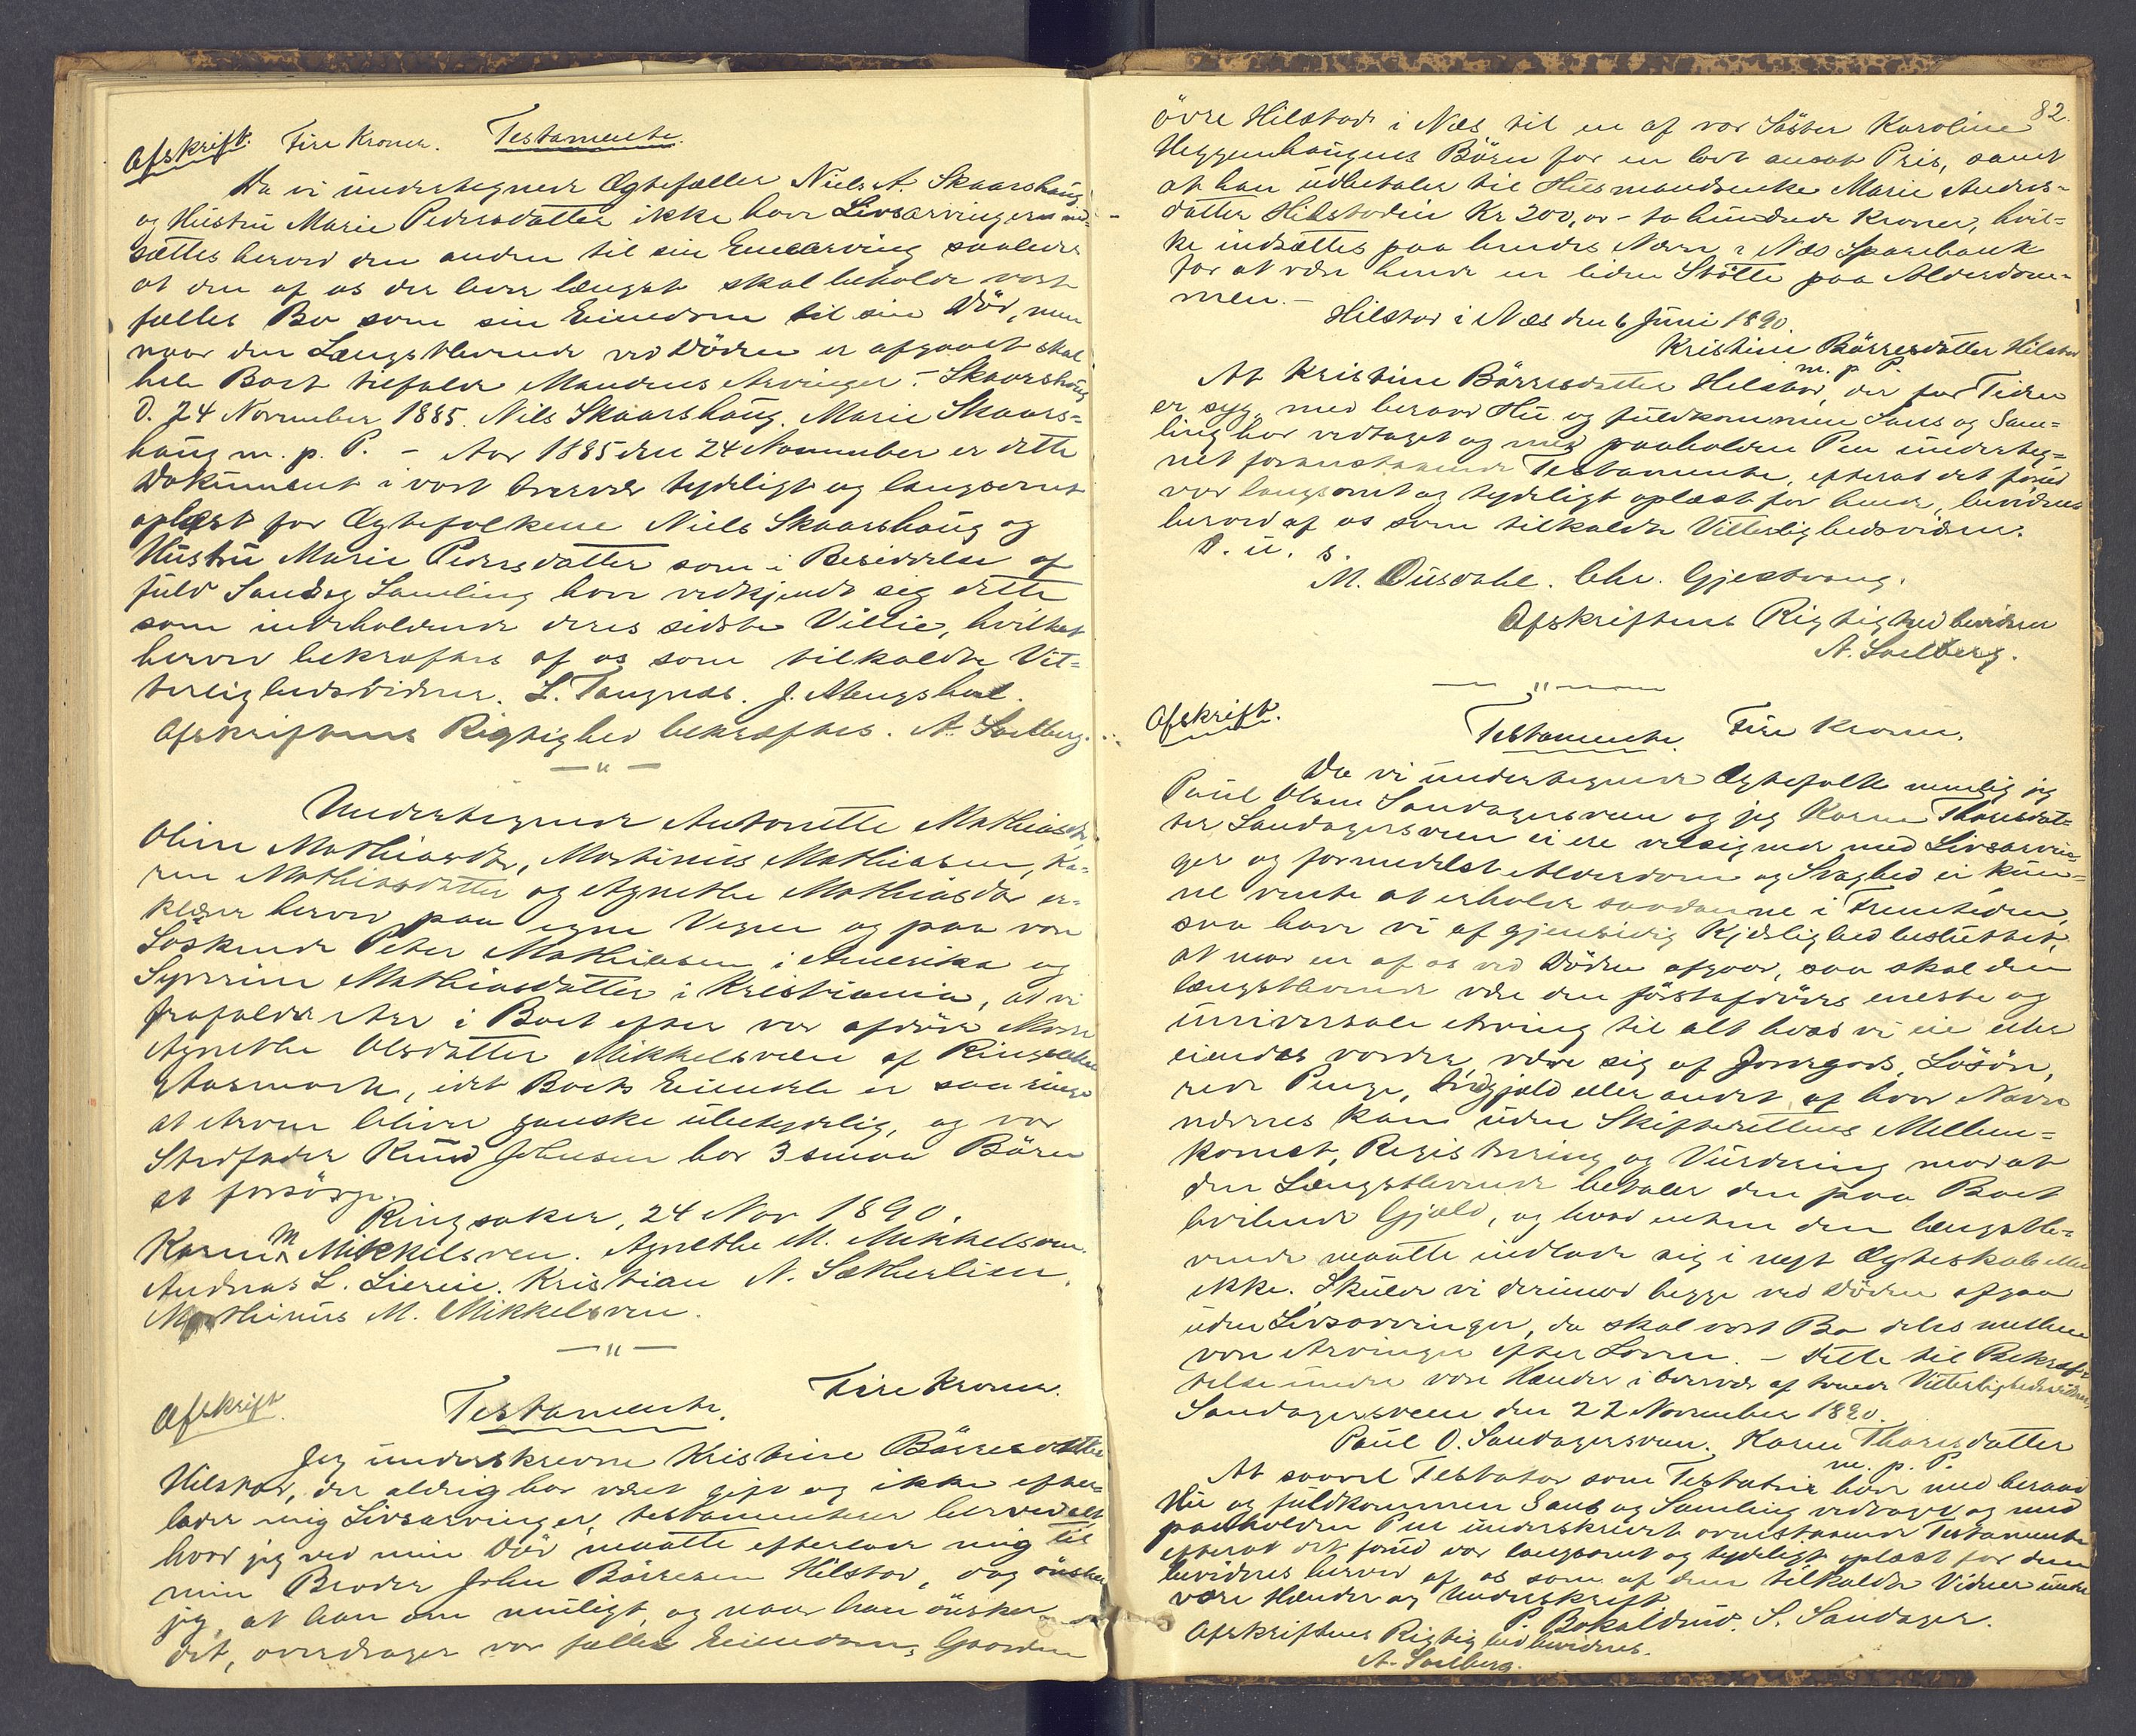 Afskrift. Fire Kroner. Testamente.
Da vi undertegnede Ægtefæller Niels A. Skaarshaug
og Hustru Marie Pedersdatter ikke have Livsarvinger ind-
sættes herved den anden til sin Enearving saaledes
at den af os der lever længst skal beholde vort
fælles Bo som sin Eiendom til sin Død, men
naar den Længstlevende ved Døden er afgaaet skal
hele Boet tilfalde Mandens Arvinger. - Skaarshaug
d. 24 November 1885. Nils Skaarshaug. Marie Skaars=
haug m. p. P. - Aar 1885 den 24 November er dette
Dokument i vort Overvær tydeligt og langsomt
oplæst for Ægtefolkene Niels Skaarshaug og
Hustru Marie Pedersdatter som i Besiddelse af
fuld Sands og Samling have vedkjendt sig dette
som indeholdende deres sidste Villie, hvilket
herved bekræftes af os som tilkaldte Vit=
terlighedsvidner. L. Tangnæs. J. Mengshoel.
Afskriftens Rigtighed bekræftes. A. Soelberg.
— " —
Undertegnede Antonette Mathiasdr,
Oline Mathiasdtr, Martinus Mathiasen, Ka=
ren Mathiasdatter og Agnethe Mathiasdr er=
klærer herved paa egne Vegne og paa vore
Söskende Peter Mathiasen i Amerika og
Syverine Mathiasdatter i Kristiania, at vi
frafalder Arv i Boet efter vor afdöde Moder
Agnethe Olsdatter Mikkelsveen af Ringsaker
Aasmark, idet Boets Eiendele er saa ringe
at Arven bliver ganske ubetydelig, og vor
Stedfader Knud Johnsen har 3 smaa Börn
at forsörge.
Ringsaker, 24 Nov 1890.
Karen M Mikkelsveen. Agnethe M. Mikkelsveen.
Andreas L. Liereie. Kristian N. Sætherlien.
Mathinus M. Mikkelsveen.
— " —
Afskrift. Testamente. Fire Kroner.
Jeg underskrevne Kristine Börresdatter
Hilstad, der aldrig har været gift og ikke efter=
lader mig Livsarvinger, testamenterer herved alt
hvad jeg ved min Död maatte efterlade mig til
min Broder John Börresen Hilstad, dog önsker
jeg, at han om muligt, og naar han önsker
det, overdrager vor fælles Eiendom, Gaarden
82.
övre Hilstad i Næs, til en af vor Söster Karoline
Heggenhaugens Börn for en lavt ansat Pris, samt
at han udbetaler til Husmandsenke Marie Anders-
datter Hilstadeie Kr 200,00 - to hundrede Kroner, hvil=
ke indsættes paa hendes Navn i Næs Sparebank
for at være hende en liden Stötte paa Alderdom-
men. -
Hilstad i Næs den 6 Juni 1890.
Kristine Börresdatter Hilstad
m. p. P.
At Kristine Börresdatter Hilstad, der for Tiden
er syg, med beraad Hu og fuldkommen Sans og Sam=
ling har vedtaget og med paaholden Pen underteg=
net foranstaaende Testamente, efterat det forud
var langsomt og tydeligt oplæst for hende, bevidnes
herved af os som tilkaldte Vitterlighedsvidner.
D. u. s.
M. Ousdahl. Chr. Gjestvang.
Afskriftens Rigtighed bevidner
A. Soelberg.
— " —
Afskrift.
Testamente. Fire Kroner.
Da vi undertegnede Ægtefolk nemlig jeg
Paul Olsen Sandagersveen og jeg Karen Thorsdat=
ter Sandagersveen ei ere velsignede med Livsarvin
ger og formedelst Alderdom og Svaghed ei kun=
ne vente at erholde saadanne i Fremtiden,
saa have vi af gjensidig Kjærlighed besluttet,
at naar en af os ved Döden afgaar, saa skal den
længstlevende være den förstafdödes eneste og
universale Arving til alt hvad vi eie eller
eiendes vorder, være sig af Jordegods, Lösöre,
rede Penge, Indgjæld eller andet af hvad Navn
nævnes kan uden Skifterettens Mellem=
komst, Registrering og Vurdering mod at
den Længstlevende betaler den paa Boet
hvilende Gjæld, og hvad enten den længstle=
vende maatte indlade sig i nyt Ægteskab eller
ikke. Skulde vi derimod begge ved Döden afgaa
uden Livsarvinger, da skal vort Bo deles mellem
vore Arvinger efter Loven. - Dette til Bekræf=
telse under vore Hænder i Overvær af tvende Vitterlighedsvidner,
Sandagersveen den 22 November 1890.
Paul O. Sandagersveen. Karen Thorsdatter
m. p. P.
At saavel Testator som Testatrix have med beraad
Hu og fuldkommen Sans og Samling vedtaget og med
paaholden Pen underskrevet ovenstaaende Testamente
efterat det forud var langsomt og tydeligt oplæst for dem
bevidnes herved af os som af dem tilkaldte Vidner under
vore Hænder og Underskrift.
P. Bokaldrud. S. Sandager.
Afskriftens Rigtighed bevidnes.
A. Soelberg.